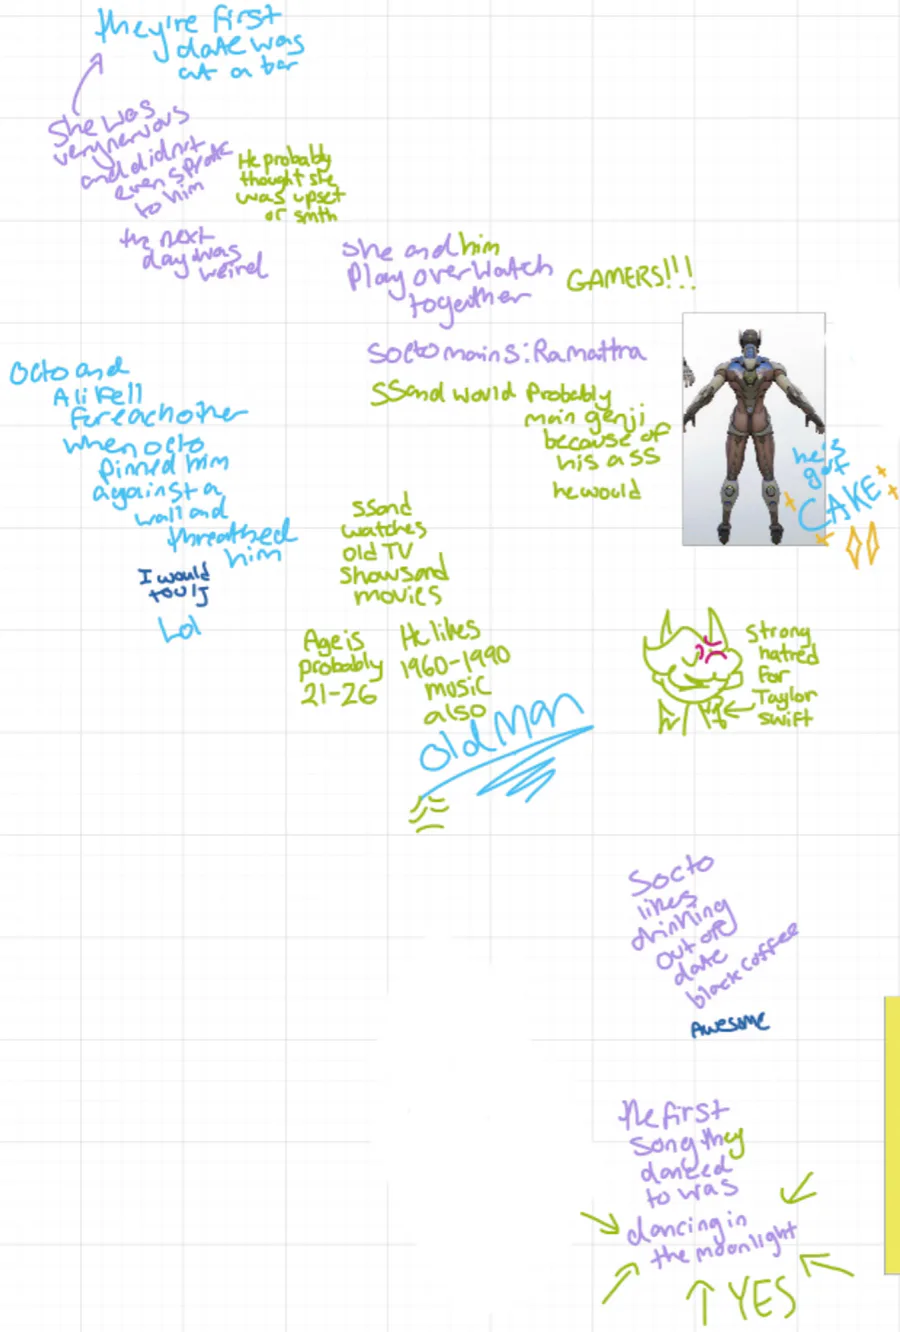 they're first
date was
at a bar
She was
very nervous
and didn't
even sproke
to him
the next
day was
weird
He probably
thought she
was upset
or smth
she and him
Play overwatch
together
GAMERS!!!
Socto mains: Ramattra
SSand would Probably
main genji
because of
his ass
he would
he's
got
CAKE
Octo and
Ali Fell
For eachother
when octo
pinned him
against a
wall and
threathed
him
I would
to
Lol
SSand
watches
old TV
shows and
movies
Age is
probably
21-26
He likes
1960-1990
music
also
old Man
Strong
hatred
For
Taylor
swift
Socto
likes
drinking
out off
date
black coffee
Awesome
the first
song they
danced
to was
dancing in
the moonlight
YES